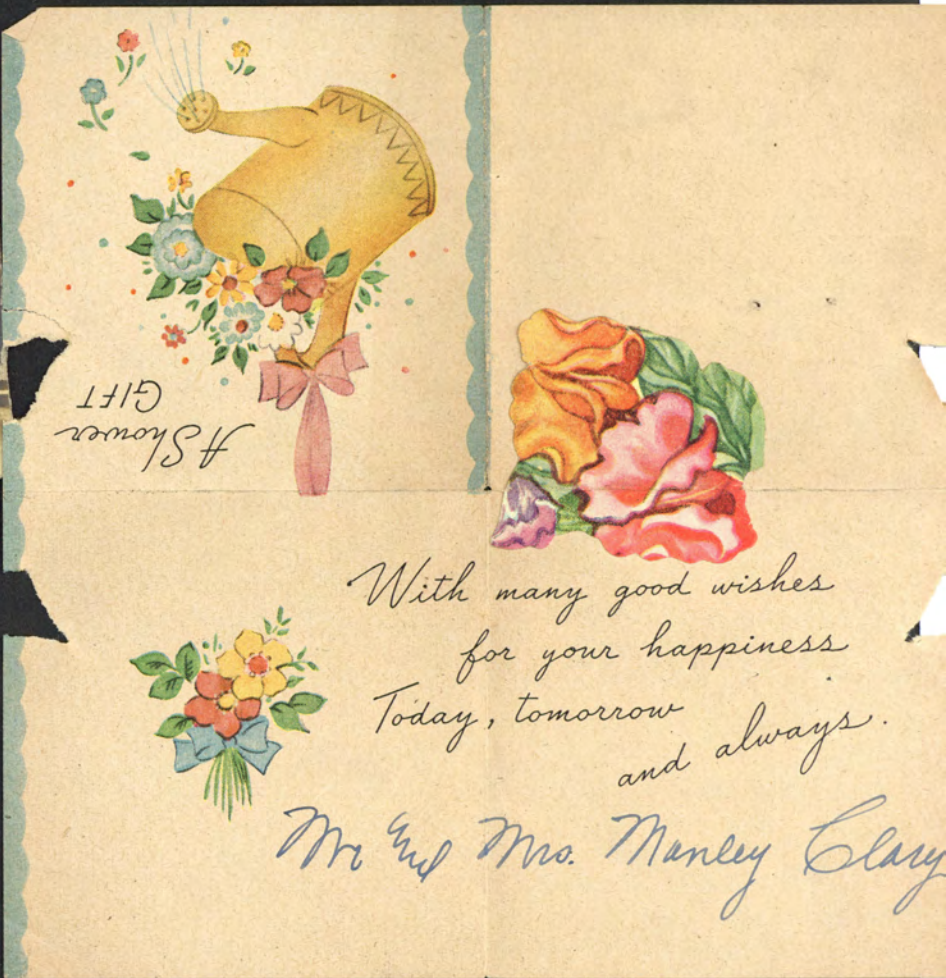 A Shower
GIFT
With many good wishes
for your happiness
Today, tomorrow
and always.
Mr and Mrs. Manley Clary